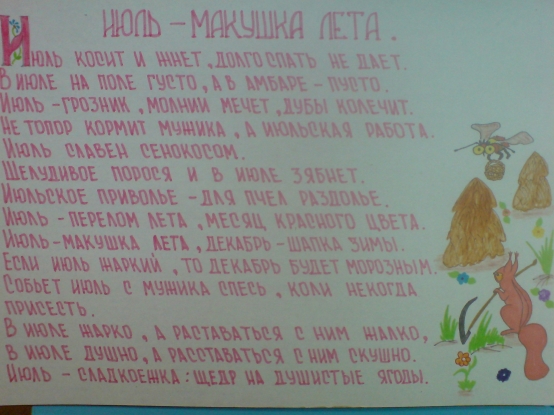 ИЮЛЬ – МАКУШКА ЛЕТА.
ИЮЛЬ КОСИТ И ЖНЕТ, ДОЛГО СПАТЬ НЕ ДАЕТ.
В ИЮЛЕ НА ПОЛЕ ГУСТО, А В АМБАРЕ – ПУСТО.
ИЮЛЬ – ГРОЗНИК, МОЛНИИ МЕЧЕТ, ДУБЫ КОЛЕЧИТ.
НЕ ТОПОР КОРМИТ МУЖИКА, А ИЮЛЬСКАЯ РАБОТА.
ИЮЛЬ СЛАВЕН СЕНОКОСОМ.
ШЕЛУДИВОЕ ПОРОСЯ И В ИЮЛЕ ЗЯБНЕТ.
ИЮЛЬСКОЕ ПРИВОЛЬЕ – ДЛЯ ПЧЕЛ РАЗДОЛЬЕ.
ИЮЛЬ – ПЕРЕЛОМ ЛЕТА, МЕСЯЦ КРАСНОГО ЦВЕТА.
ИЮЛЬ – МАКУШКА ЛЕТА, ДЕКАБРЬ – ШАПКА ЗИМЫ.
ЕСЛИ ИЮЛЬ ЖАРКИЙ, ТО ДЕКАБРЬ БУДЕТ МОРОЗНЫМ.
СОБЬЕТ ИЮЛЬ С МУЖИКА СПЕСЬ, КОЛИ НЕКОГДА
ПРИСЕСТЬ.
В ИЮЛЕ ЖАРКО, А РАСТАВАТЬСЯ С НИМ ЖАЛКО,
В ИЮЛЕ ДУШНО, А РАССТАВАТЬСЯ С НИМ СКУШНО.
ИЮЛЬ – СЛАДКОЕЖКА: ЩЕДР НА ДУШИСТЫЕ ЯГОДЫ.